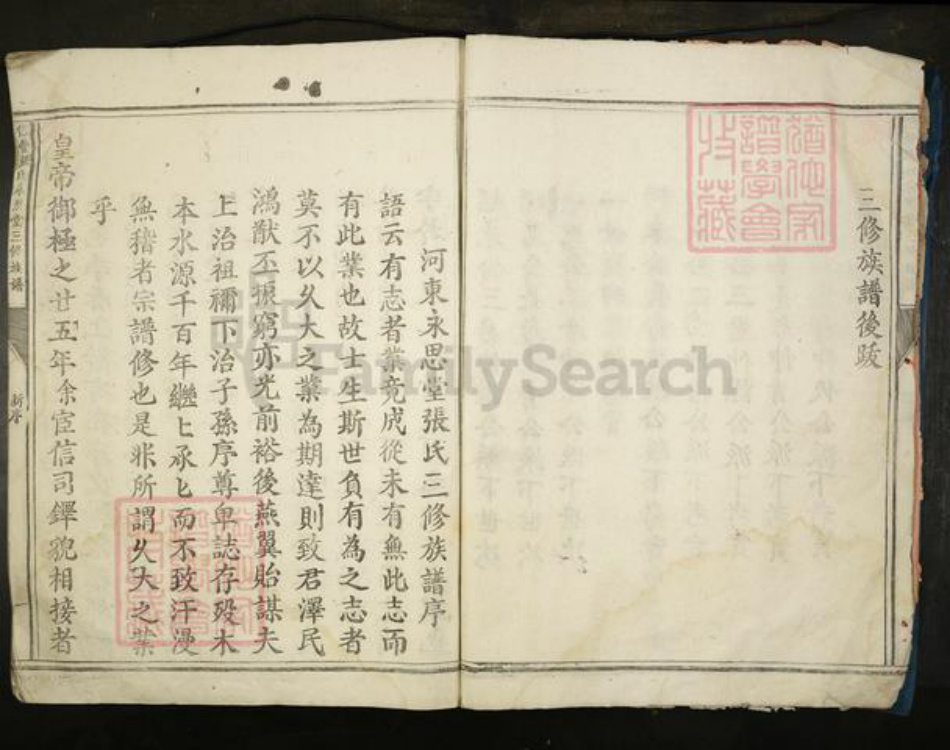 三修族譜後跋
河東永思堂張氏三修族譜序
語云有志者業竟成從未有無此志而
有此業也故士生斯世負有為之志者
莫不以久大之業為期達則致君澤民
鴻猷丕振窮亦光前裕後燕翼貽謀夫
上治祖禰下治子孫序尊卑誌存歿木
本水源千百年繼匕承匕而不致汗漫
無稽者宗譜修也是非所謂久大之業
乎
皇帝御極之廿五年余宦信司鐸貌相接者
三修族譜
新序
譜學會
收藏
FamilySearch